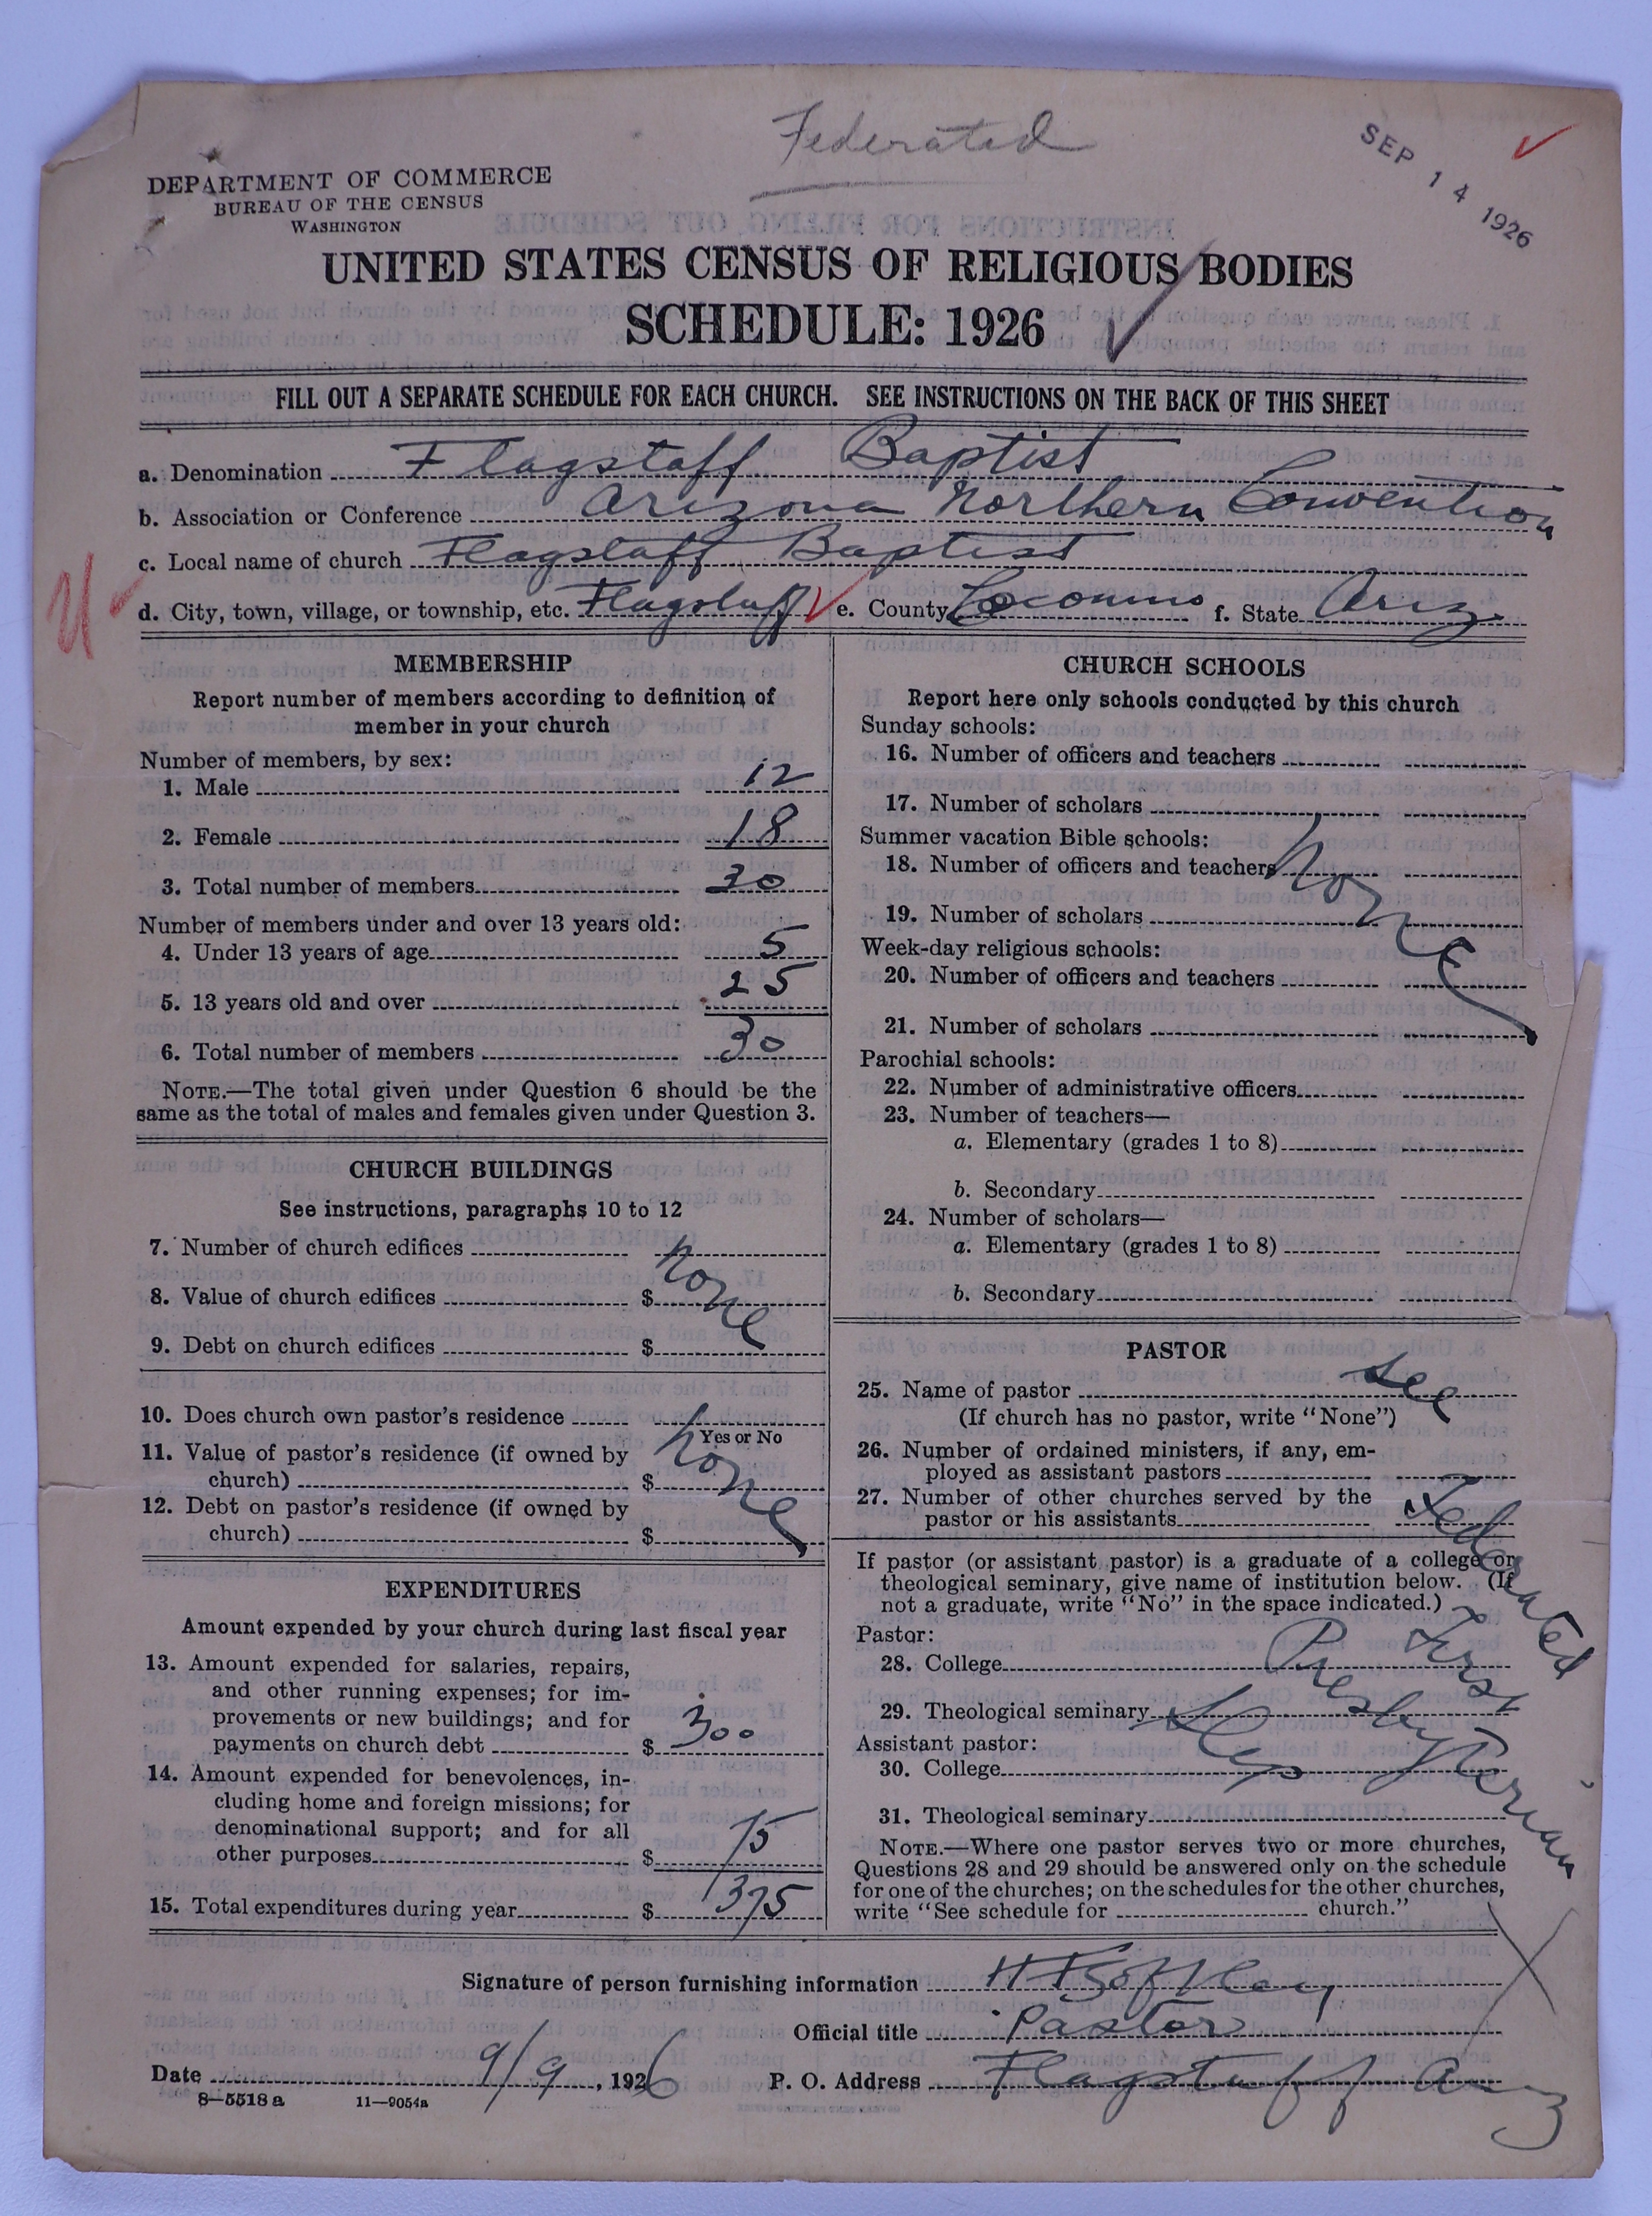 Federated
SEP 14 1926
DEPARTMENT OF COMMERCE
BUREAU OF THE CENSUS
WASHINGTON
UNITED STATES CENSUS OF RELIGIOUS BODIES
SCHEDULE: 1926
FILL OUT A SEPARATE SCHEDULE FOR EACH CHURCH. SEE INSTRUCTIONS ON THE BACK OF THIS SHEET
a. Denomination Flagstaff Baptist
b. Association or Conference Arizona Northern Convention
c. Local name of church Flagstaff Baptist
d. City, town, village, or township, etc. Flagstaff e. County Coconino f. State Ariz
MEMBERSHIP
Report number of members according to definition of
member in your church
Number of members, by sex:
1. Male 12
2. Female 18
3. Total number of members 30
Number of members under and over 13 years old:
4. Under 13 years of age 5
5. 13 years old and over 25
6. Total number of members 30
NOTE.—The total given under Question 6 should be the
same as the total of males and females given under Question 3.
CHURCH BUILDINGS
See instructions, paragraphs 10 to 12
7. Number of church edifices
8. Value of church edifices $ none
9. Debt on church edifices $
10. Does church own pastor's residence
Yes or No
11. Value of pastor's residence (if owned by
church) $ none
12. Debt on pastor's residence (if owned by
church) $
EXPENDITURES
Amount expended by your church during last fiscal year
13. Amount expended for salaries, repairs,
and other running expenses; for im-
provements or new buildings; and for
payments on church debt $ 300
14. Amount expended for benevolences, in-
cluding home and foreign missions; for
denominational support; and for all
other purposes $ 75
15. Total expenditures during year $ 375
CHURCH SCHOOLS
Report here only schools conducted by this church
Sunday schools:
16. Number of officers and teachers
17. Number of scholars
Summer vacation Bible schools:
18. Number of officers and teachers none
19. Number of scholars
Week-day religious schools:
20. Number of officers and teachers
21. Number of scholars
Parochial schools:
22. Number of administrative officers
23. Number of teachers—
a. Elementary (grades 1 to 8)
b. Secondary
24. Number of scholars—
a. Elementary (grades 1 to 8)
b. Secondary
PASTOR
25. Name of pastor see
(If church has no pastor, write "None")
26. Number of ordained ministers, if any, em-
ployed as assistant pastors
27. Number of other churches served by the
pastor or his assistants Federated
If pastor (or assistant pastor) is a graduate of a college or
theological seminary, give name of institution below. (If
not a graduate, write "No" in the space indicated.)
Pastor: First
28. College Presbyterian
29. Theological seminary
Assistant pastor:
30. College
31. Theological seminary
NOTE.—Where one pastor serves two or more churches,
Questions 28 and 29 should be answered only on the schedule
for one of the churches; on the schedules for the other churches,
write "See schedule for church."
Signature of person furnishing information
Official title Pastor
Date 9/9, 1926 P. O. Address Flagstaff Ariz
8—5518 a 11—9054a